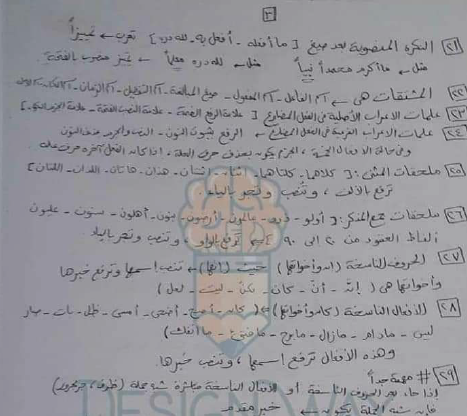 ٣
٢١ النكرة المنصوبة بعد صيغ [ ما أفعله - أفعل به - لله دره ] تعرب ← تمييزاً
مثل ← ما أكرم محمداً نبياً مثل ← لله دره ← تمييز منصوب بالفتحة
٢٢ المشتقات هى ← اسم الفاعل - اسم المفعول - صيغ المبالغة - اسم التفضيل - اسم الزمان - اسم المكان
٢٣ علامات الاعراب الأصلية فى الفعل المضارع [ علامة الرفع الضمة - علامة النصب الفتحة - علامة الجزم السكون ]
٢٤ علامات الاعراب الفرعية فى الفعل المضارع ← الرفع بثبوت النون - النصب والجزم حذف النون
وفى حالة الأفعال الخمسة ، الجزم يكون بحذف حرف العلة ، إذا كان الفعل آخره حرف علة
٢٥ ملحقات المثنى : [ كلاهما - كلتاهما - اثنا - اثنتان - هذان - هاتان - اللذان - اللتان ]
ترفع بالألف ، وتنصب وتجر بالياء
٢٦ ملحقات جمع المذكر : [ أولو - ذوو - عالمون - أرضون - بنون - أهلون - سنون - عليون
ألفاظ العقود من ٢٠ إلى ٩٠ ] ترفع بالواو ، وتنصب وتجر بالياء
٢٧ الحروف الناسخة ( إن وأخواتها ) حيث ( إنها ) ← تنصب اسمها وترفع خبرها
وأخواتها هى ( إنَّ - أنَّ - كأن - لكنَّ - ليت - لعل )
٢٨ الأفعال الناسخة ( كان وأخواتها ) ← ( كان - أصبح - أضحى - أمسى - ظل - بات - صار
ليس - مادام - مازال - مابرح - مافتئ - ما انفك )
وهذه الأفعال ترفع اسمها ، وتنصب خبرها
٢٩ # مهمة جداً
إذا جاء بعد الحروف الناسخة أو الأفعال الناسخة مباشرة شبه جملة ( ظرف ، جر ومجرور )
فإن شبه الجملة يكون ← خبر مقدم
DESIGN WAY